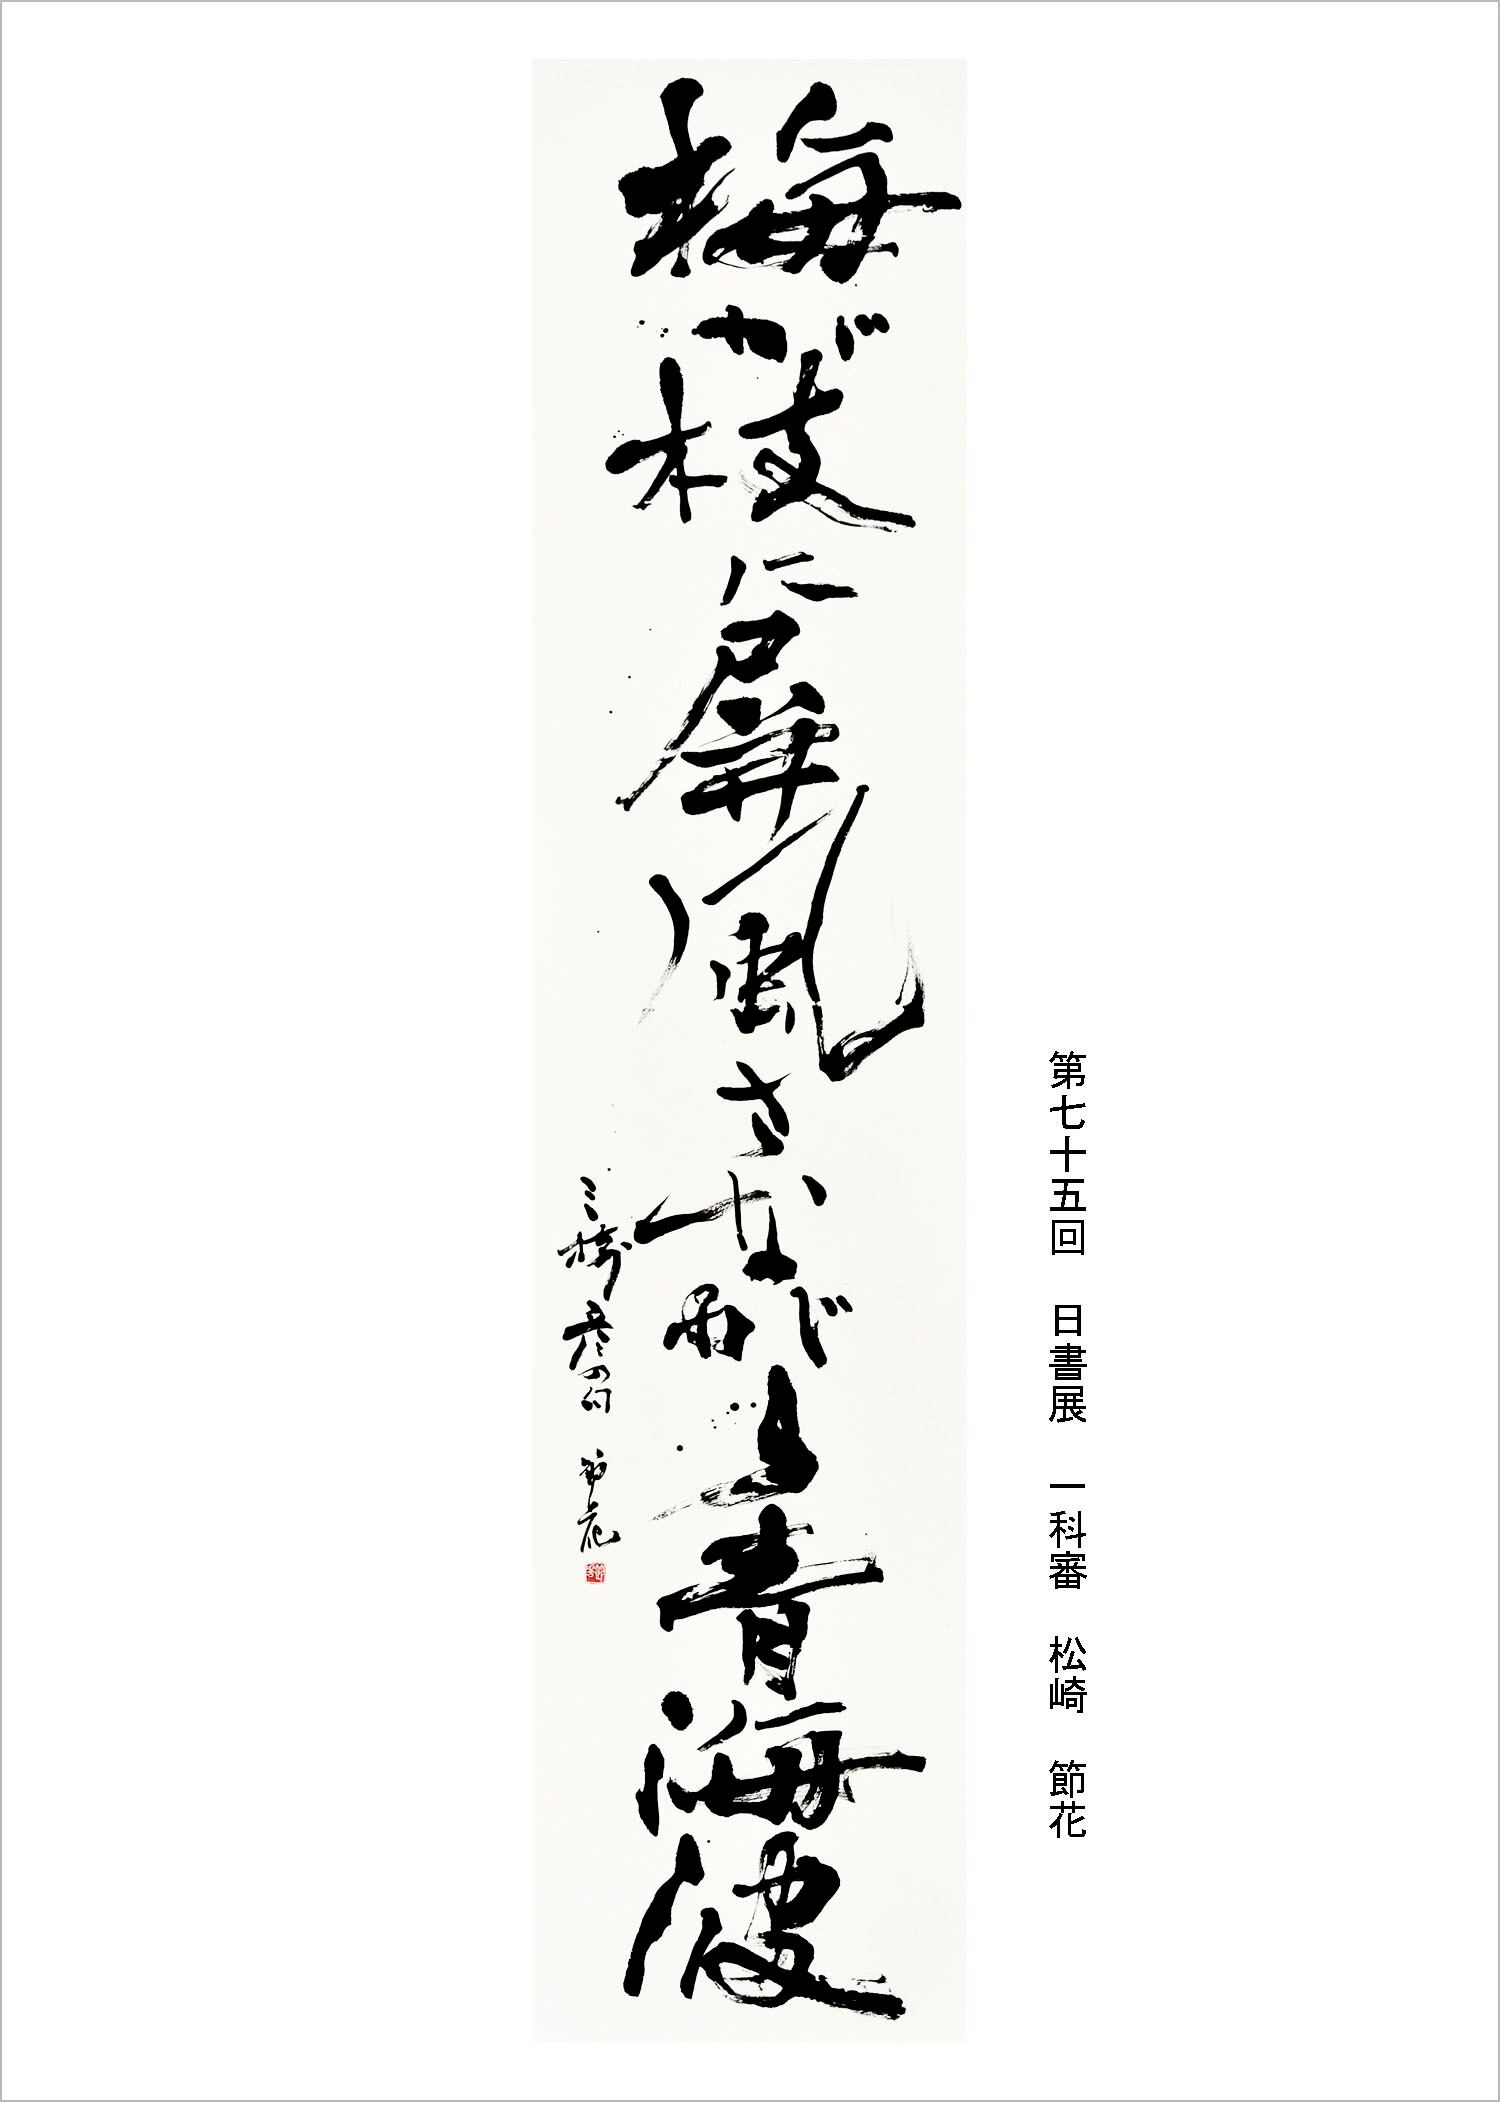 第七十五回　日書展　一科審　松崎　節花
梅が枝に屏風さながら青海波
三樹彦の句　節花